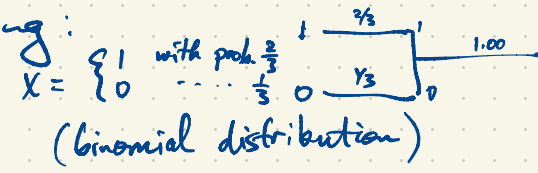 eg:
X = { 1 with prob. 2/3
0 .... 1/3
1 2/3 1 1.00
0 1/3 0
(binomial distribution)